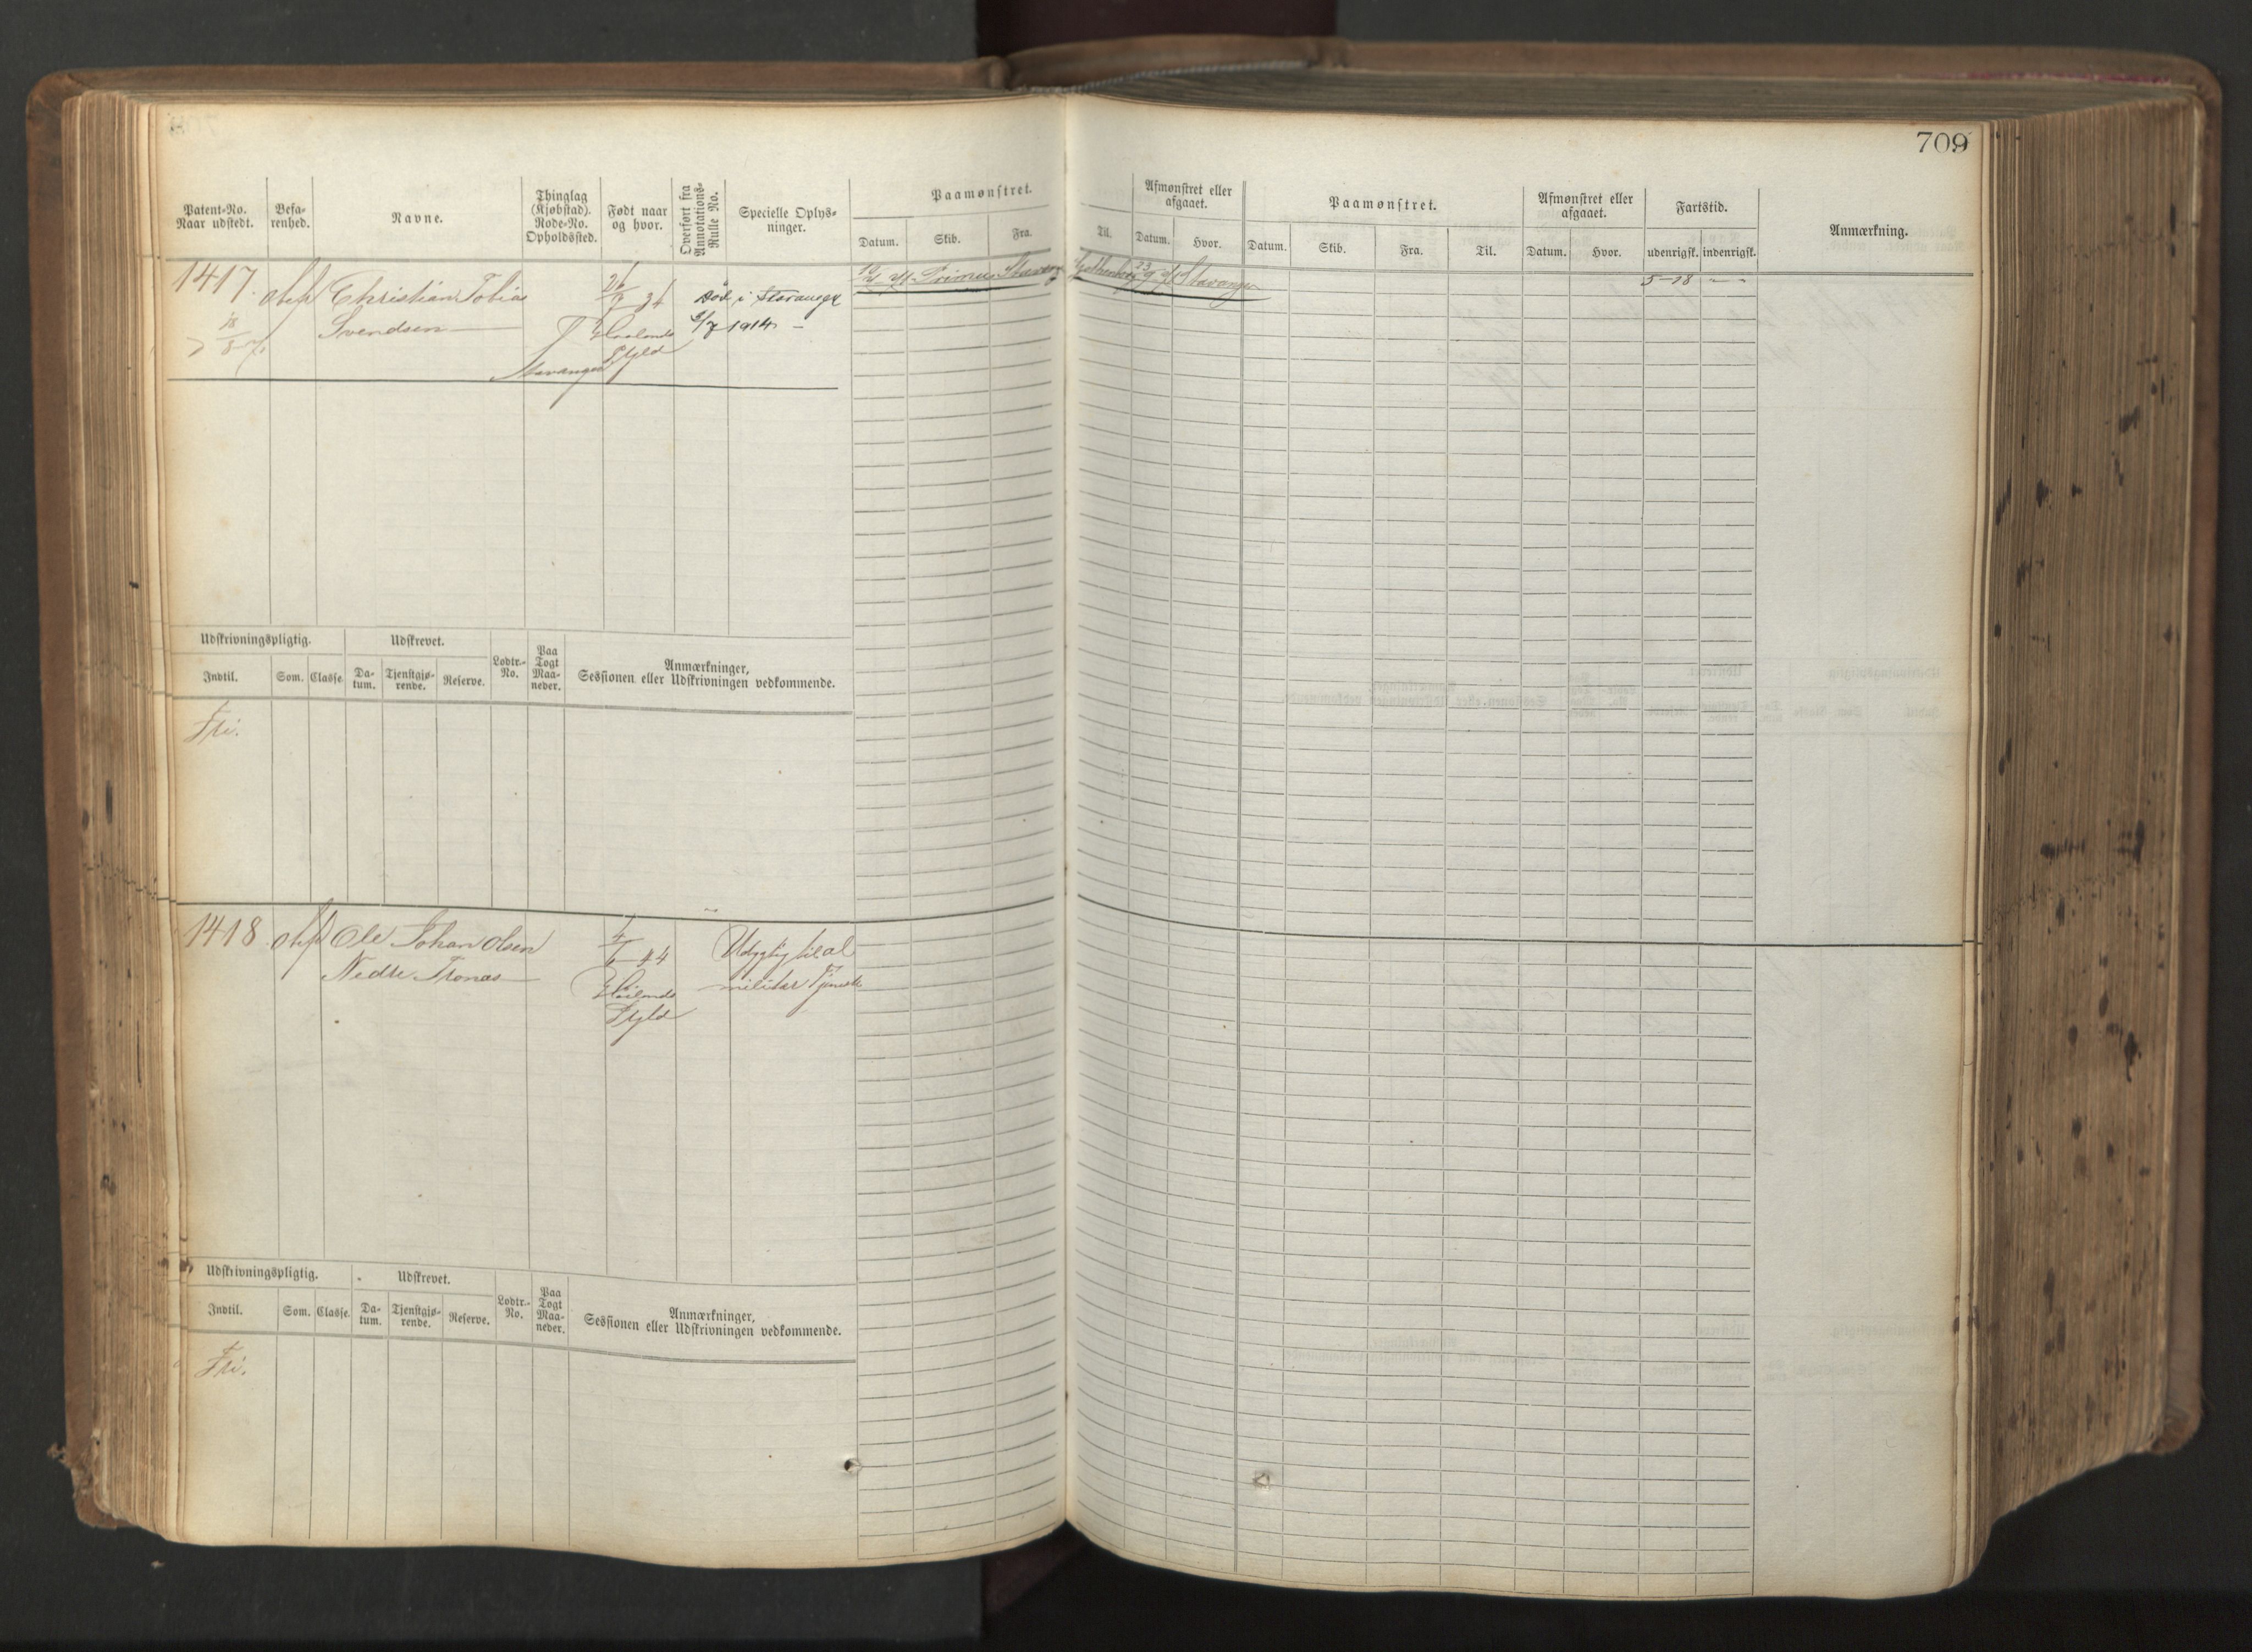 709
Patent-No.
Naar udstedt.
Befa-
renhed.
Navne.
Thinglag
(Kjøbstad).
Rode-No.
Opholdssted.
Født naar
og hvor.
Overført fra
Annotations-
Rulle No.
Specielle Oplys-
ninger.
Paamønstret.
Datum.
Skib.
Fra.
Til.
Afmønstret eller
afgaaet.
Datum.
Hvor.
Paamønstret.
Datum.
Skib.
Fra.
Til.
Afmønstret eller
afgaaet.
Datum.
Hvor.
Fartstid.
udenrigsk.
indenrigsk.
Anmærkning.
1417.
Christian Tobias
Svendsen
Død i Stavanger
1914
Stavanger
Primus Stavang
Stavanger
5-18
Udskrivningspligtig.
Indtil.
Som.
Classe
Udskrevet.
Da-
tum.
Tjenstgjø-
rende.
Reserve.
Lodtr.-
No.
Paa
Togt
Maa-
neder.
Anmærkninger,
Sessionen eller Udskrivningen vedkommende.
Fri.
1418
Ole Johan Olsen
Nedre Tronæs
44
Udygtig til al
militær Tjeneste
Udskrivningspligtig.
Indtil.
Som.
Classe
Udskrevet.
Da-
tum.
Tjenstgjø-
rende.
Reserve.
Lodtr.-
No.
Paa
Togt
Maa-
neder.
Anmærkninger,
Sessionen eller Udskrivningen vedkommende.
Fri.